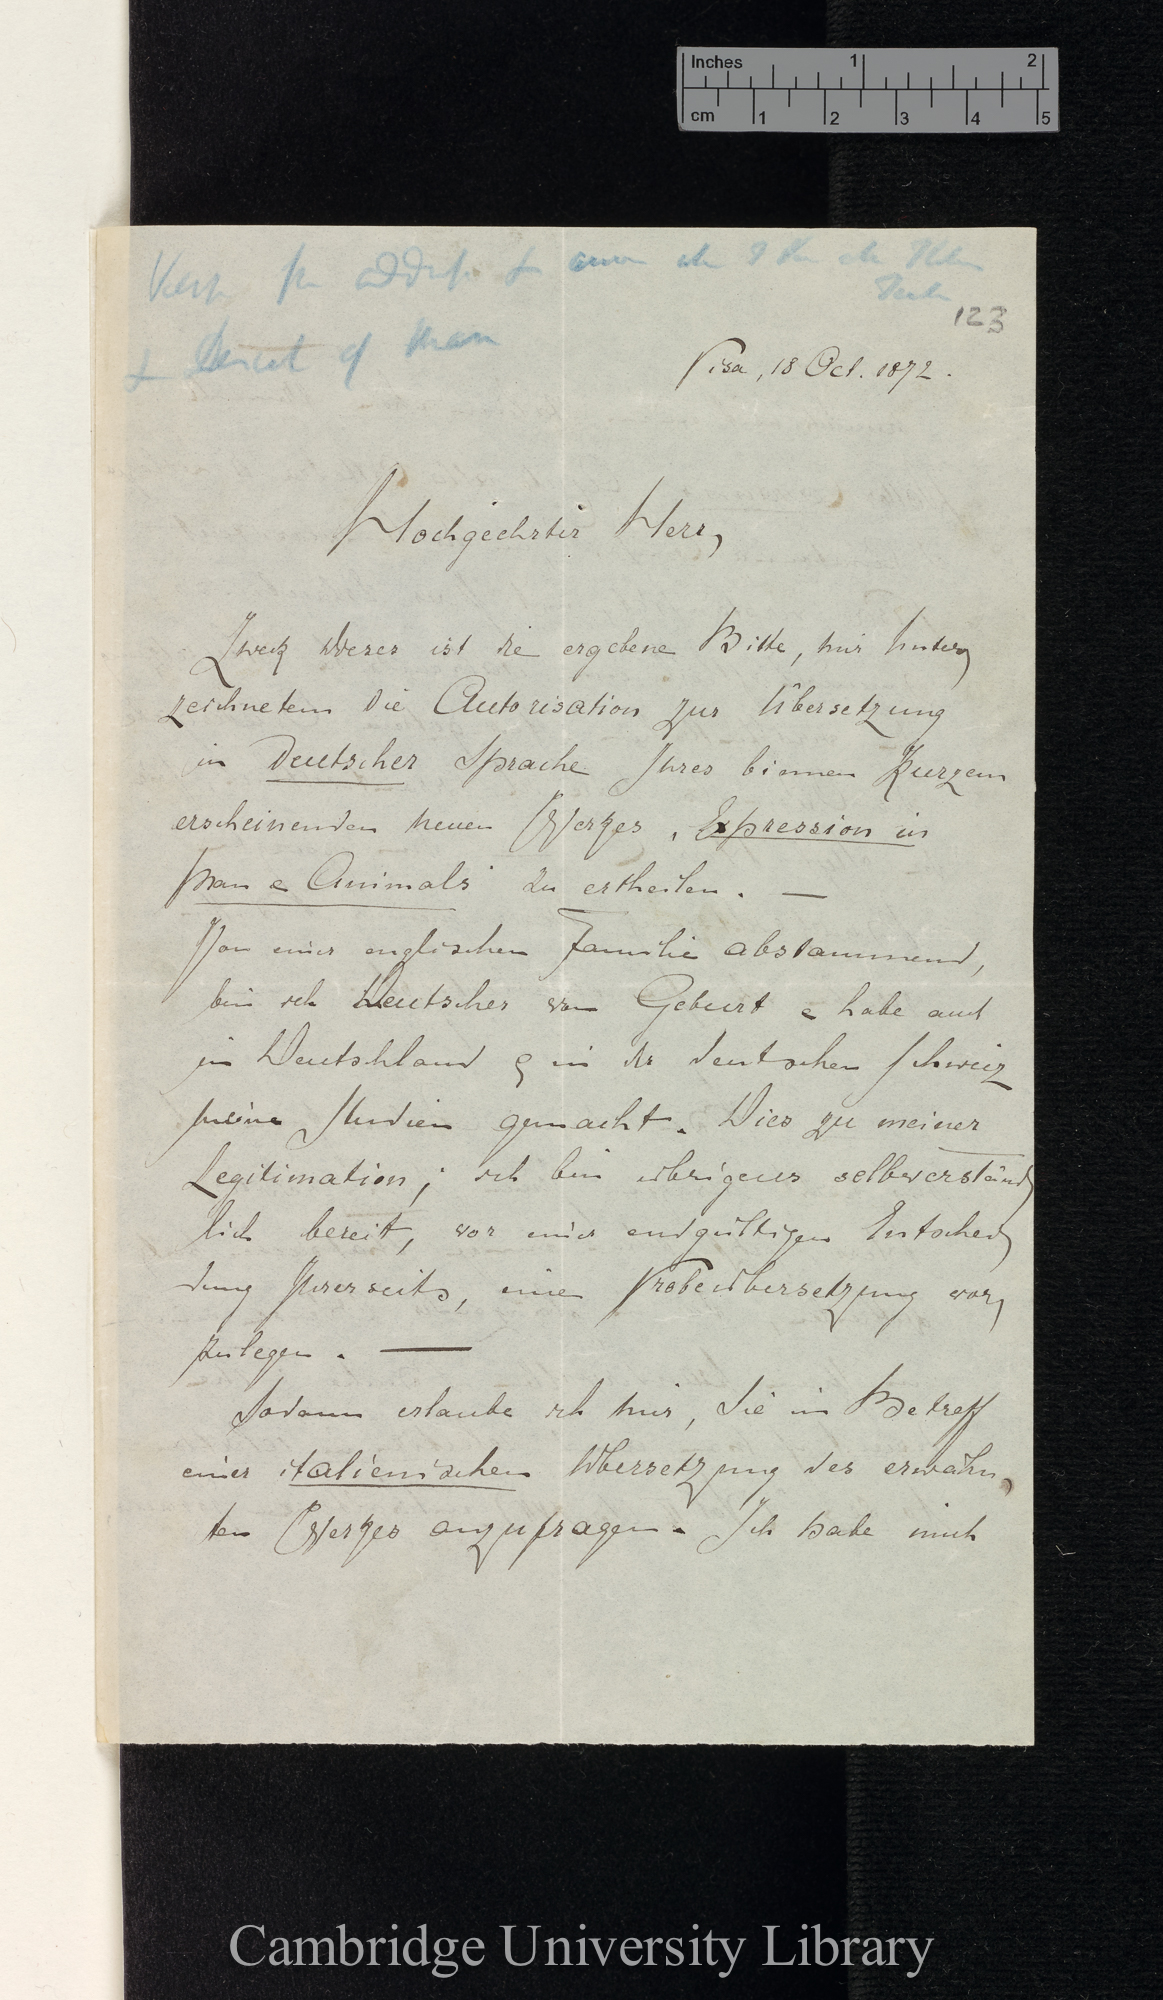 Inches 1 2
cm 1 2 3 4 5
Keep for address &
123
& Descent of Man
Pisa, 18 Oct. 1872.
Hochgeehrter Herr,
Zweck dieses ist die ergebene Bitte, mir Unter-
zeichnetem die Autorisation zur Übersetzung
in Deutscher Sprache Ihres binnen Kurzem
erscheinenden neuen Werkes, Expression in
Man & Animals" zu ertheilen. —
Von einer englischen Familie abstammend,
bin ich Deutscher von Geburt & habe auch
in Deutschland & in der deutschen Schweiz
meine Studien gemacht. Dies zu meiner
Legitimation; ich bin übrigens selbverständ-
lich bereit, vor einer endgültigen Entschei-
dung Ihrerseits, eine Probeübersetzung vor-
zulegen. —
Sodann erlaube ich mir, Sie in Betreff
einer italienischen Übersetzung des erwähn-
ten Werkes anzufragen. Ich habe mich
Cambridge University Library